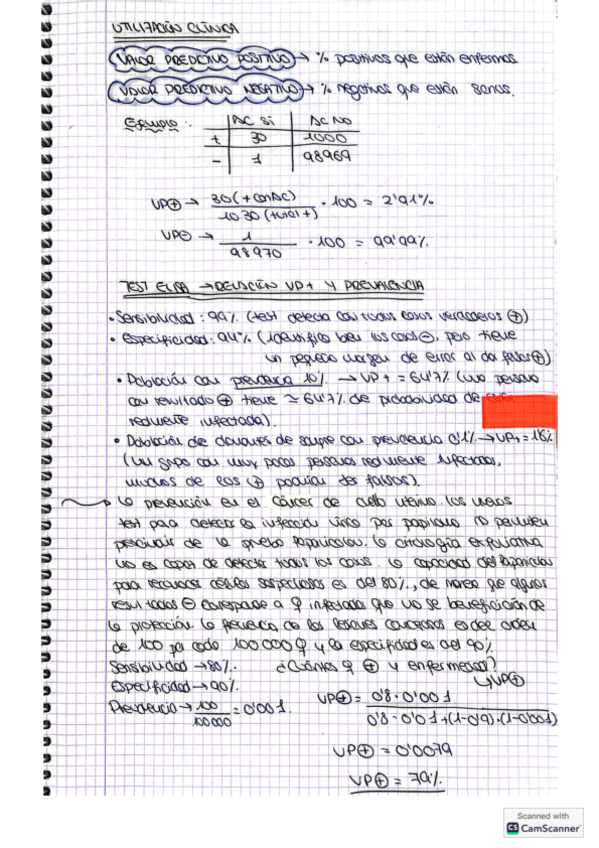 UTILIZACIÓN CLÍNICA
VALOR PREDICTIVO POSITIVO → % positivos que están enfermos.
VALOR PREDICTIVO NEGATIVO → % negativos que están sanos.
Ejemplo:
AC SI AC NO
+ 30 1000
- 1 98969
VP⊕ → 30 (+ con AC) / 1030 (total +) · 100 = 2'91%
VP⊖ → 1 / 98970 · 100 = 99'99%
TEST ELISA → RELACIÓN VP+ Y PREVALENCIA
• Sensibilidad: 99% (test detecta casi todos casos verdaderos ⊕)
• Especificidad: 94% (identifica bien los casos ⊖, pero tiene
un pequeño margen de error al dar falsos ⊕)
• Población con prevalencia 10% → VP+ = 64'7% (una persona
con resultado ⊕ tiene ≃ 64'7% de probabilidad de
realmente infectada).
• Población de donantes de sangre con prevalencia 0'1% → VP+ = 1'6%
(un grupo con muy pocas personas realmente infectadas,
muchos de los ⊕ podrían ser falsos).
La prevención en el cáncer de cuello uterino. Los nuevos
test para detectar la infección virus por papiloma no permiten
prescindir de la prueba Papanicolau. La citología exfoliativa
no es capaz de detectar todos los casos. La capacidad del Papanicolau
para reconocer células sospechosas es del 80%, de manera que algunos
resultados ⊖ corresponde a ♀ infectadas que no se benefician de
la protección. La de las lesiones cancerosas es del orden
de 100 por cada 100000 ♀ y la especificidad es del 90%
Sensibilidad → 80%. ¿Cuántas ♀ ⊕ y enfermedad?
↳ VP⊕
Especificidad → 90%
Prevalencia → 100 / 100000 = 0'001.
VP⊕ = 0'8 · 0'001 / 0'8 · 0'01 + (1-0'9) · (1-0'001)
VP⊕ = 0'0079
VP⊕ = 79%
Scanned with
CS CamScanner